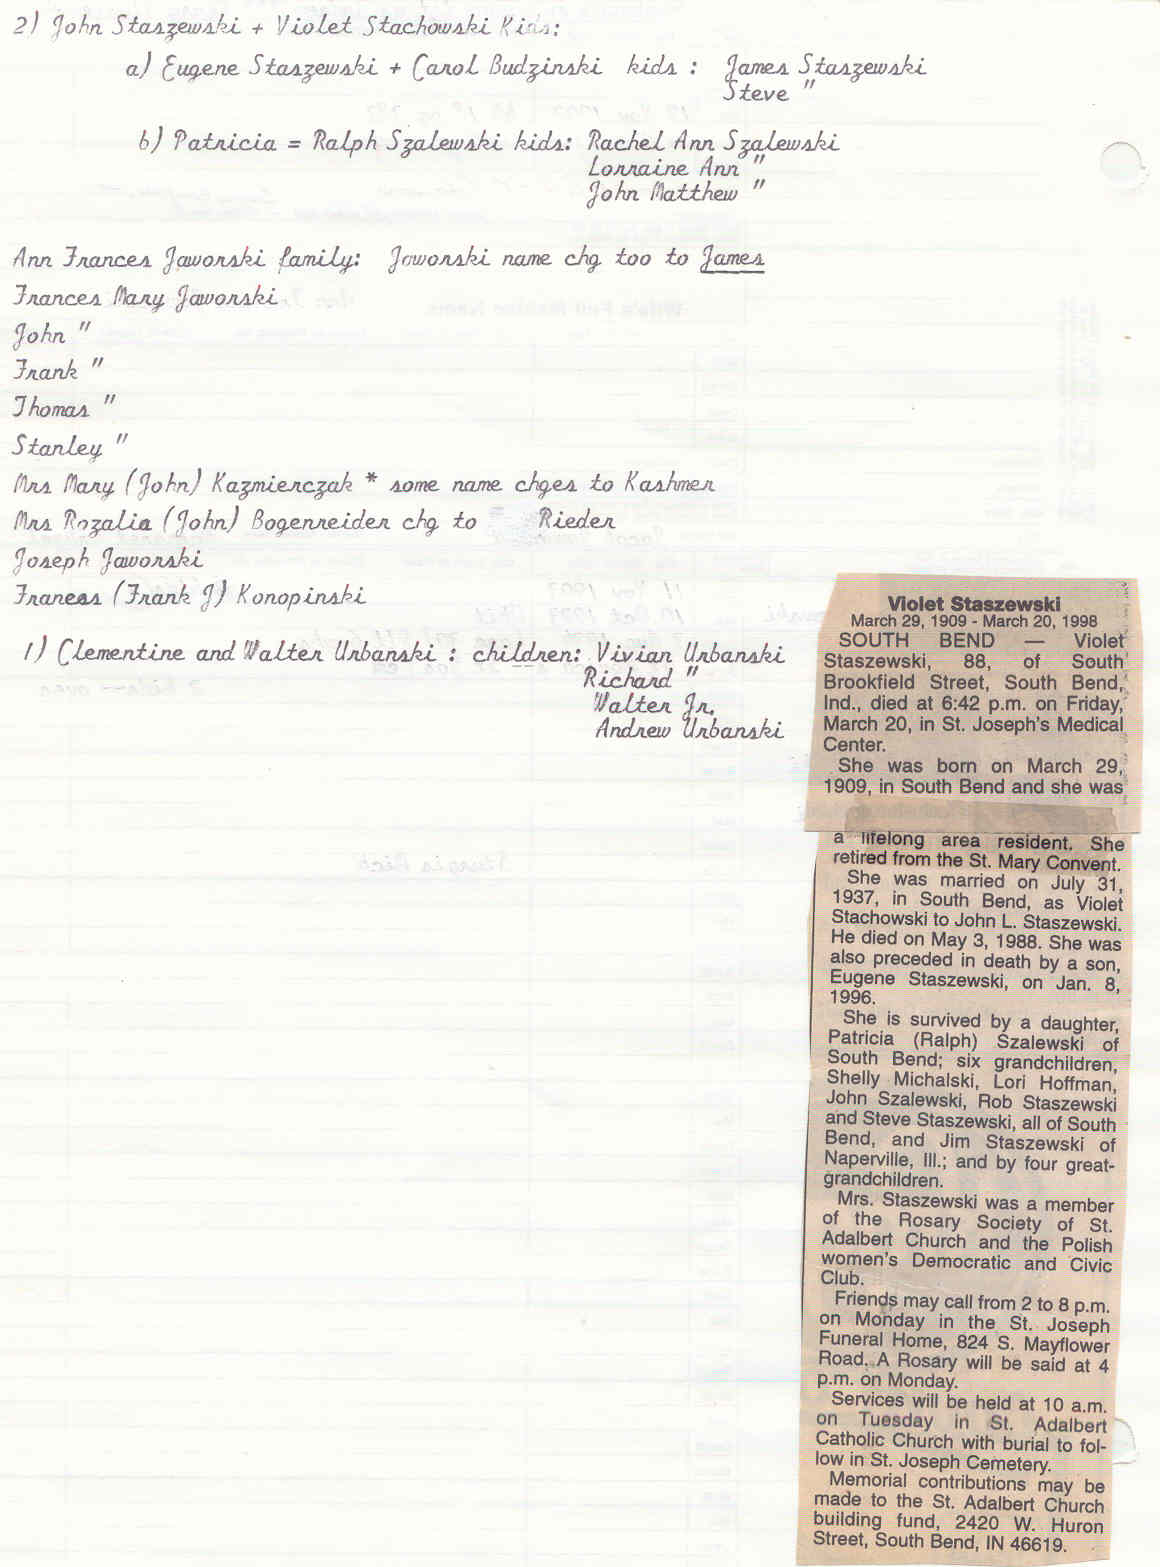 2) John Staszewski + Violet Stachowski Kids:
a) Eugene Staszewski + Carol Budzinski kids : James Staszewski
Steve "
b) Patricia = Ralph Szalewski kids: Rachel Ann Szalewski
Lorraine Ann "
John Matthew "
Ann Frances Jaworski family: Joworski name chg too to James
Frances Mary Jaworski
John "
Frank "
Thomas "
Stanley "
Mrs Mary (John) Kazmierczak * some name chges to Kashmer
Mrs Rozalia (John) Bogenreider chg to Rieder
Joseph Jaworski
Frances (Frank J) Konopinski
1) Clementine and Walter Urbanski : children: Vivian Urbanski
Richard "
Walter Jr.
Andrew Urbanski
Violet Staszewski
March 29, 1909 - March 20, 1998
SOUTH BEND — Violet
Staszewski, 88, of South
Brookfield Street, South Bend,
Ind., died at 6:42 p.m. on Friday,
March 20, in St. Joseph's Medical
Center.
She was born on March 29,
1909, in South Bend and she was
a lifelong area resident. She
retired from the St. Mary Convent.
She was married on July 31,
1937, in South Bend, as Violet
Stachowski to John L. Staszewski.
He died on May 3, 1988. She was
also preceded in death by a son,
Eugene Staszewski, on Jan. 8,
1996.
She is survived by a daughter,
Patricia (Ralph) Szalewski of
South Bend; six grandchildren,
Shelly Michalski, Lori Hoffman,
John Szalewski, Rob Staszewski
and Steve Staszewski, all of South
Bend, and Jim Staszewski of
Naperville, Ill.; and by four great-
grandchildren.
Mrs. Staszewski was a member
of the Rosary Society of St.
Adalbert Church and the Polish
women's Democratic and Civic
Club.
Friends may call from 2 to 8 p.m.
on Monday in the St. Joseph
Funeral Home, 824 S. Mayflower
Road. A Rosary will be said at 4
p.m. on Monday.
Services will be held at 10 a.m.
on Tuesday in St. Adalbert
Catholic Church with burial to fol-
low in St. Joseph Cemetery.
Memorial contributions may be
made to the St. Adalbert Church
building fund, 2420 W. Huron
Street, South Bend, IN 46619.